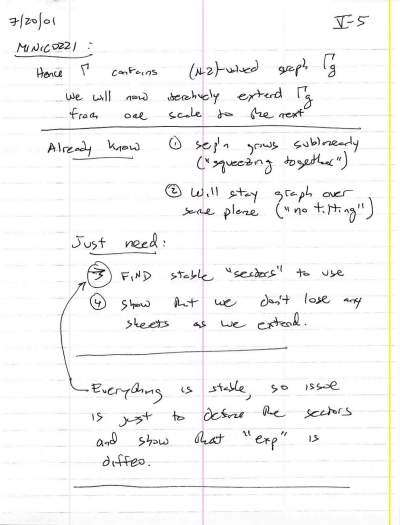 7/20/01 V-5
MINICOZZI:
Hence Γ contains (N-2)-valued graph Γg
We will now iteratively extend Γg
from one scale to the next
Already know ① sep'n grows sublinearly
("squeezing together")
② Will stay graph over
same plane ("no tilting")
Just need:
③ FIND stable "sectors" to use
④ show that we don't lose any
sheets as we extend.
Everything is stable, so issue
is just to define the sectors
and show that "exp" is
diffeo.